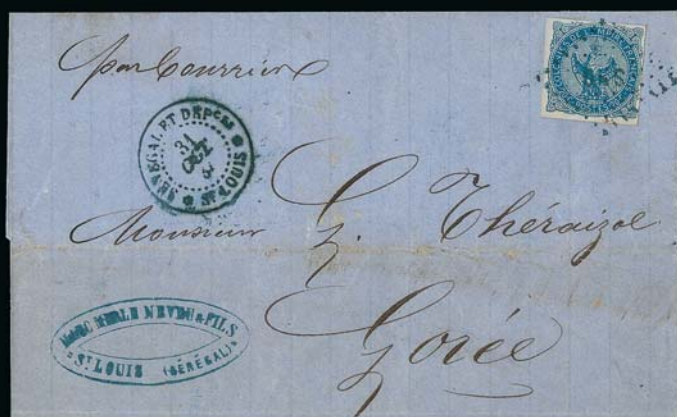 par Courrier
SÉNÉGAL ET DÉPces
31
OCT
ST LOUIS
Monsieur G. Théraizol
Gorée
MARC MERLE NEVEU & FILS
ST LOUIS (SÉNÉGAL)